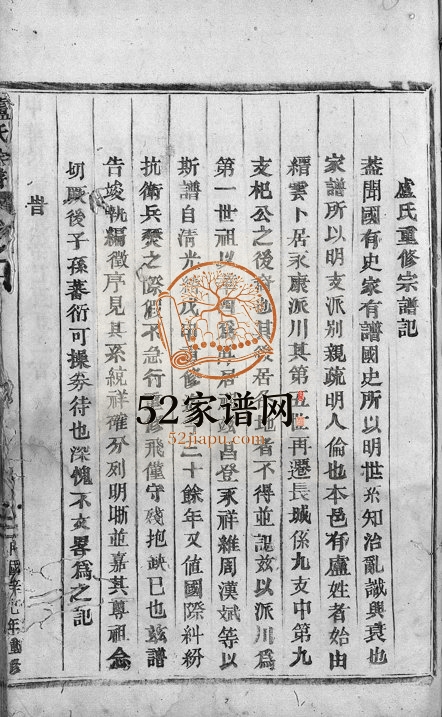 盧氏重修宗譜記
蓋聞國有史家有譜國史所以明世系知治亂識興衰也
家譜所以明支派別親疏明人倫也本邑有盧姓者始由
縉雲卜居永康派川其第五世再遷長城係九支中第九
支杞公之後裔也其後居各地者不得並認茲以派川爲
第一世祖以 居 昌登永祥維周漢斌等以
斯譜自清光緒戊申重修 二十餘年又值國際糾紛
抗衛兵燹之際假不急行 飛僅守殘抱缺已也茲譜
告竣執編徵序見其系統祥確分列明晰並嘉其尊祖念
切厥後子孫蕃衍可操劵待也深愧不文畧爲之記
旹
盧氏宗譜
民國辛巳年重修
52家谱网
52jiapu.com